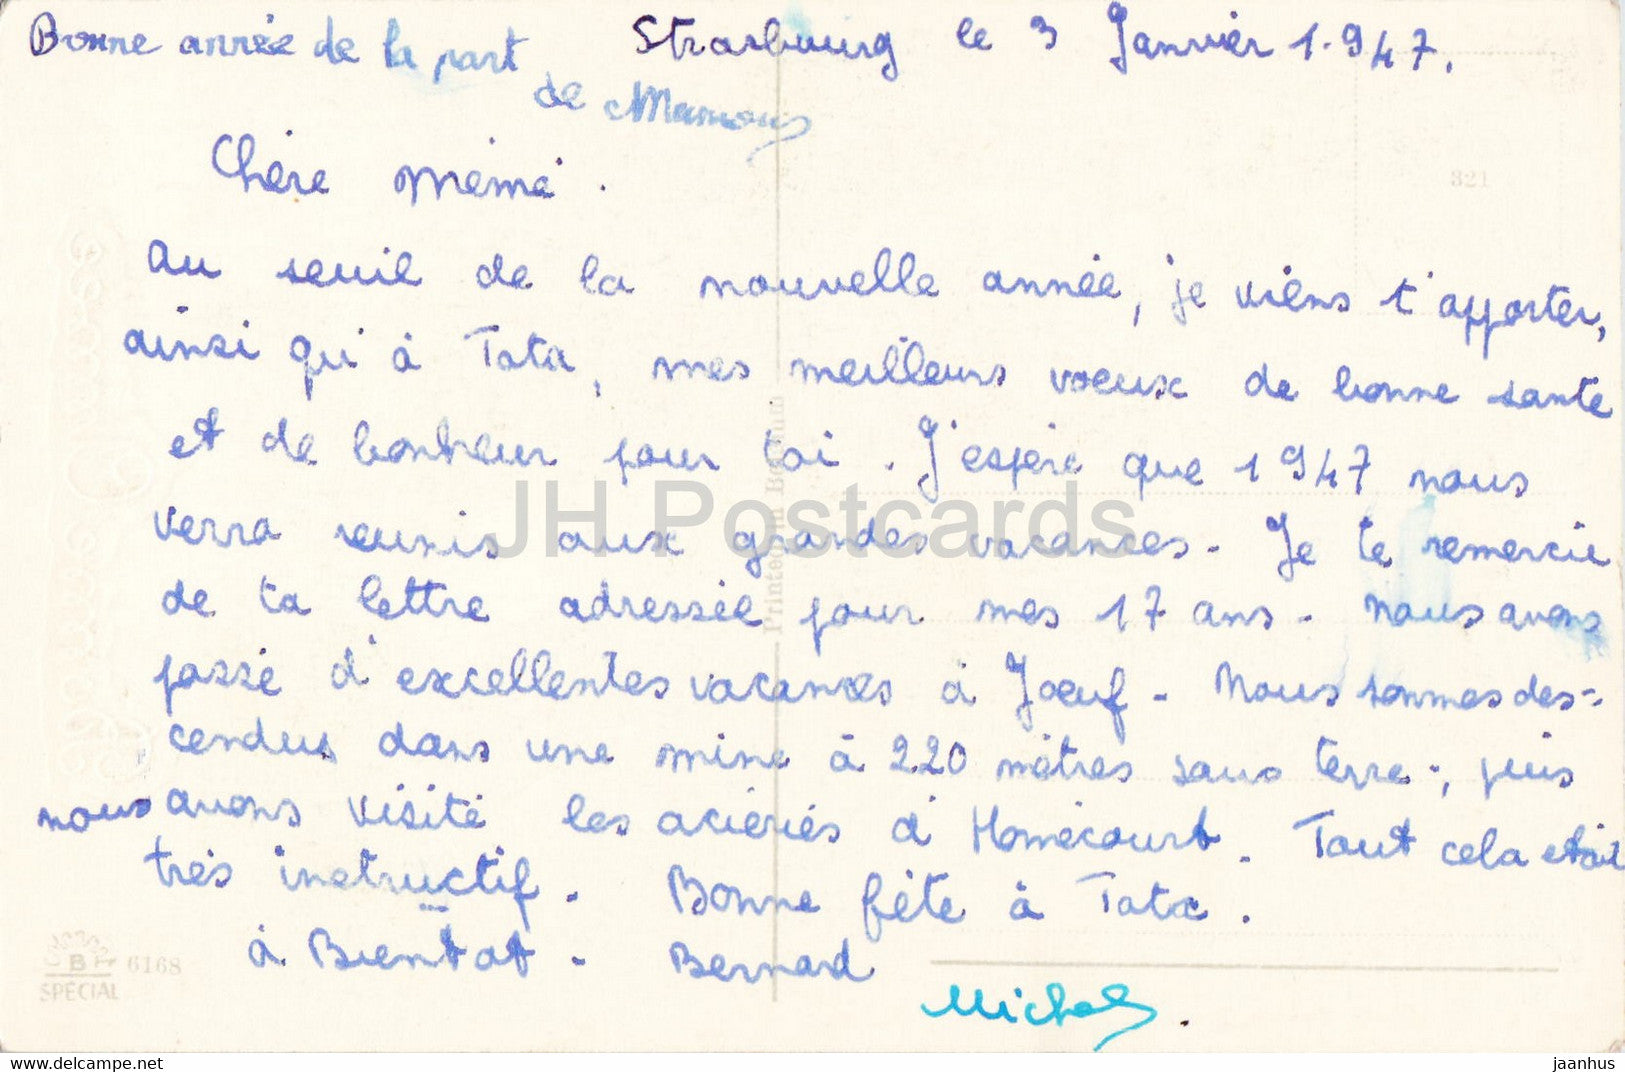 Bonne année de la part
de Mamous
Strasbourg le 3 Janvier 1.947.
Chère mémé.
321
au seuil de la nouvelle année, je viens t'apporter,
ainsi qu'à Tata, mes meilleurs voeux de bonne santé
et de bonheur pour toi. J'espère que 1947 nous
verra reunis aux grandes vacances. Je te remercie
de ta lettre adressée pour mes 17 ans. nous avons
passé d'excellentes vacances à Joeuf. Nous sommes des=
cendus dans une mine à 220 mètres sous terre; puis
nous avons visité les aciéries d'Homécourt. Tout cela était
très instructif. Bonne fête à Tata.
à Bientot. Bernard
Michel.
JH Postcards
Printed in Belgium
B
SPÉCIAL
6168
www.delcampe.net
jaanhus